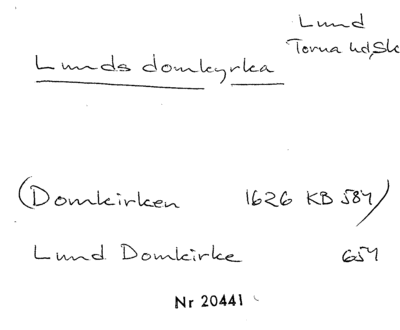 Lund
Torna hd, Sk
Lunds domkyrka
(Domkirken 1626 KB 584)
Lund Domkirke 654
Nr 20441